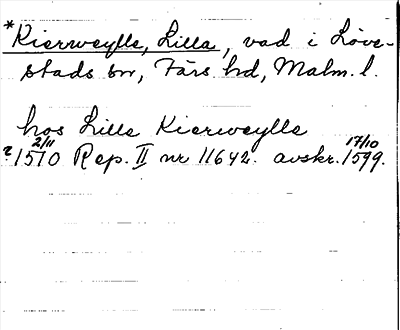 *Kierweylle, Lilla, vad i Löve-
stads sn, Färs hd, Malm. l.
hos Lille Kierweylle
? 1510 2/11 Rep. II nr 11642. avskr. 1599 17/10.